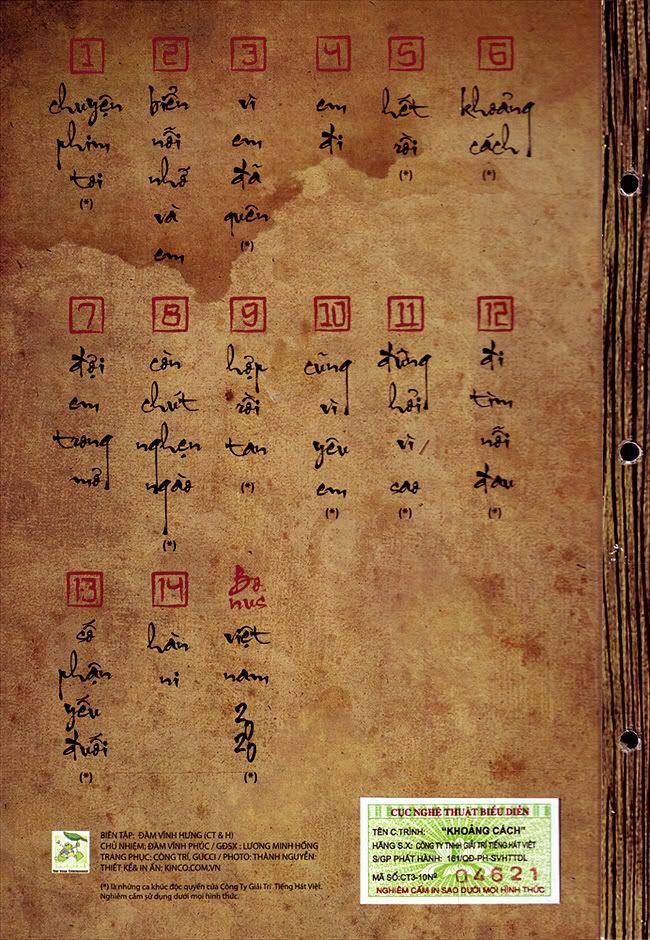 1
chuyện
phim
tôi
(*)
2
biển
nỗi
nhớ
và
em
3
vì
em
đã
quên
(*)
4
em
đi
5
hết
rồi
(*)
6
khoảng
cách
(*)
7
đợi
em
trong
mơ
8
còn
chút
nghẹn
ngào
(*)
9
hợp
rồi
tan
(*)
10
cũng
vì
yêu
em
(*)
11
đừng
hỏi
vì
sao
(*)
12
đi
tìm
nỗi
đau
(*)
13
số
phận
yếu
đuối
(*)
14
hàn
ni
Bo
nus
việt
nam
20
20
(*)
BIÊN TẬP: ĐÀM VĨNH HƯNG (CT & H)
CHỦ NHIỆM: ĐÀM VĨNH PHÚC / GĐSX : LƯƠNG MINH HỒNG
TRANG PHỤC: CÔNG TRÍ, GUCCI / PHOTO: THÀNH NGUYỄN
THIẾT KẾ& IN ẤN: KINCO.COM.VN
(*) là những ca khúc độc quyền của Công Ty Giải Trí Tiếng Hát Việt.
Nghiêm cấm sử dụng dưới mọi hình thức.
CỤC NGHỆ THUẬT BIỂU DIỄN
TÊN C.TRÌNH: "KHOẢNG CÁCH"
HÃNG S.X: CÔNG TY TNHH GIẢI TRÍ TIẾNG HÁT VIỆT
S/GP PHÁT HÀNH: 161/QĐ-PH-SVHTTDL
MÃ SỐ:CT3-10Nº 04621
NGHIÊM CẤM IN SAO DƯỚI MỌI HÌNH THỨC